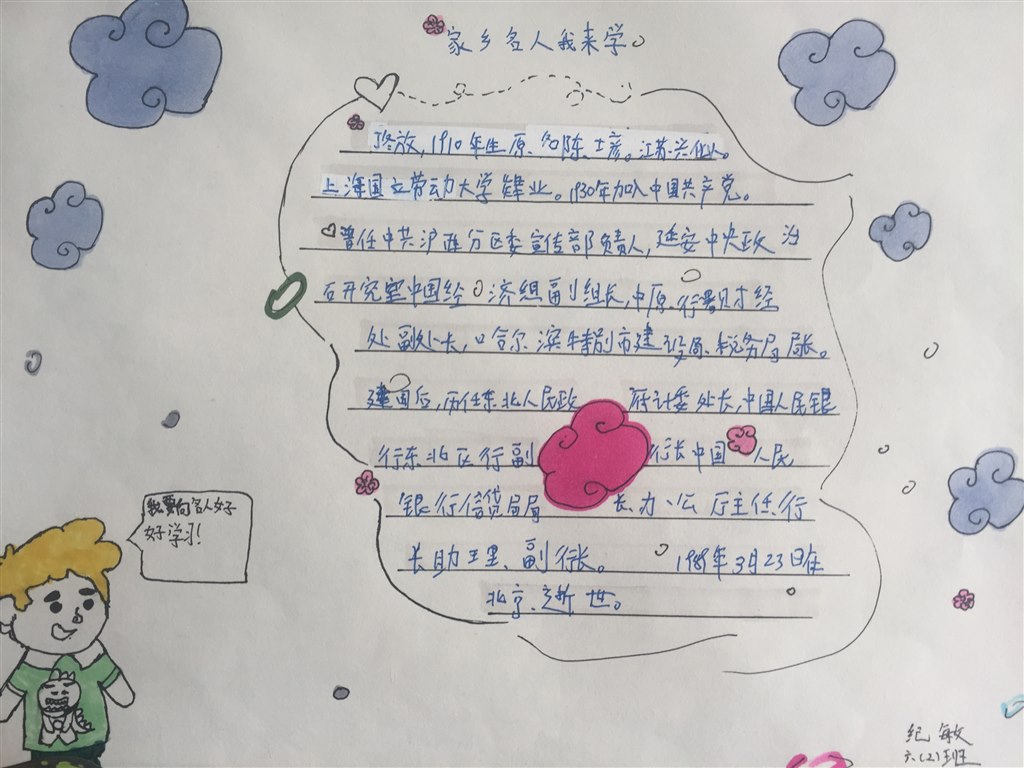 家乡名人我来学
放,1910年生原名陈士彦。江苏兴化人。
上海国立劳动大学肄业。1930年加入中国共产党。
曾任中共沪西分区委宣传部负责人,延安中央政治
研究室中国经济组副组长,中原行署财经
处副处长,哈尔滨特别市建设局、税务局局长。
建国后,历任东北人民政府计委处长,中国人民银
行东北区行副行长中国人民
银行信贷局局长办公厅主任行
长助理、副行长。1989年3月23日在
北京逝世。
我要向名人好
好学习!
纪敏
六(2)班